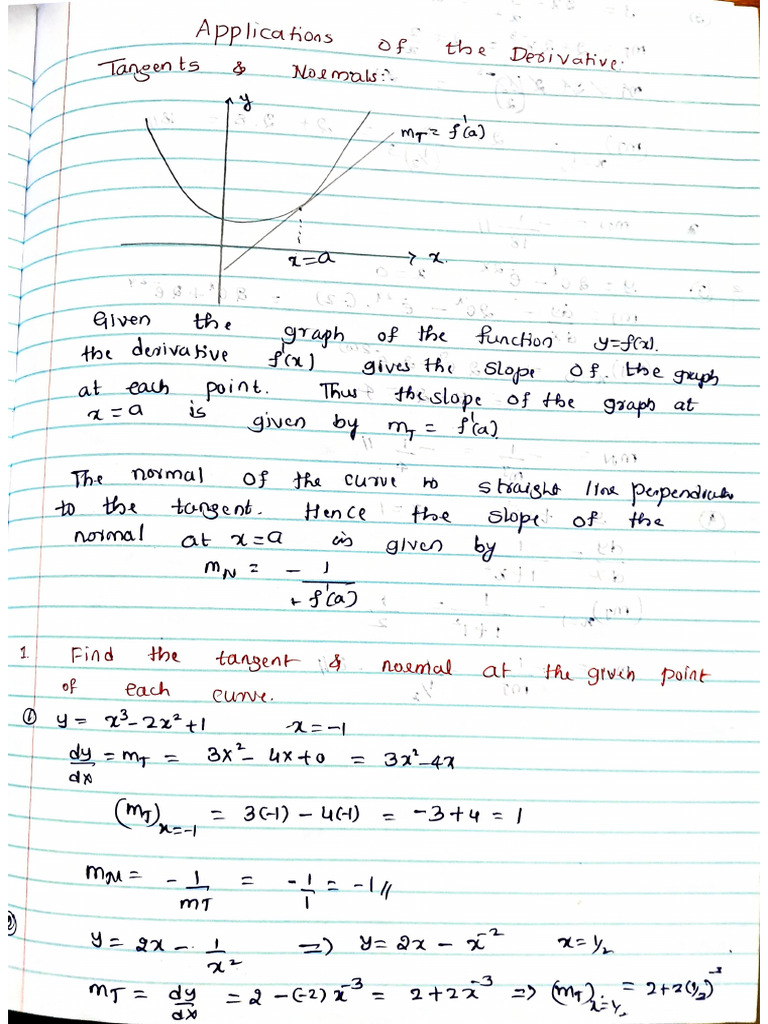 Applications of the Derivative.
Tangents & Normals:-
y
m_T = f'(a)
x=a
x
Given the graph of the function y=f(x).
the derivative f'(x) gives the slope of the graph
at each point. Thus the slope of the graph at
x=a is given by m_T = f'(a).
The normal of the curve is straight line perpendicular
to the tangent. Hence the slope of the
normal at x=a is given by
m_N = - 1 / + f'(a)
1. Find the tangent & normal at the given point
of each curve.
① y = x³-2x²+1 x=-1
dy/dx = m_T = 3x²- 4x+0 = 3x²-4x
(m_T)_x=-1 = 3(-1) - 4(-1) = -3+4 = 1
m_N = - 1/m_T = -1/1 = -1 //
② y= 2x - 1/x² => y= 2x - x⁻² x=1/2
m_T = dy/dx = 2 -(-2) x⁻³ = 2+2x⁻³ => (m_T)_x=1/2 = 2+2(1/2)⁻³